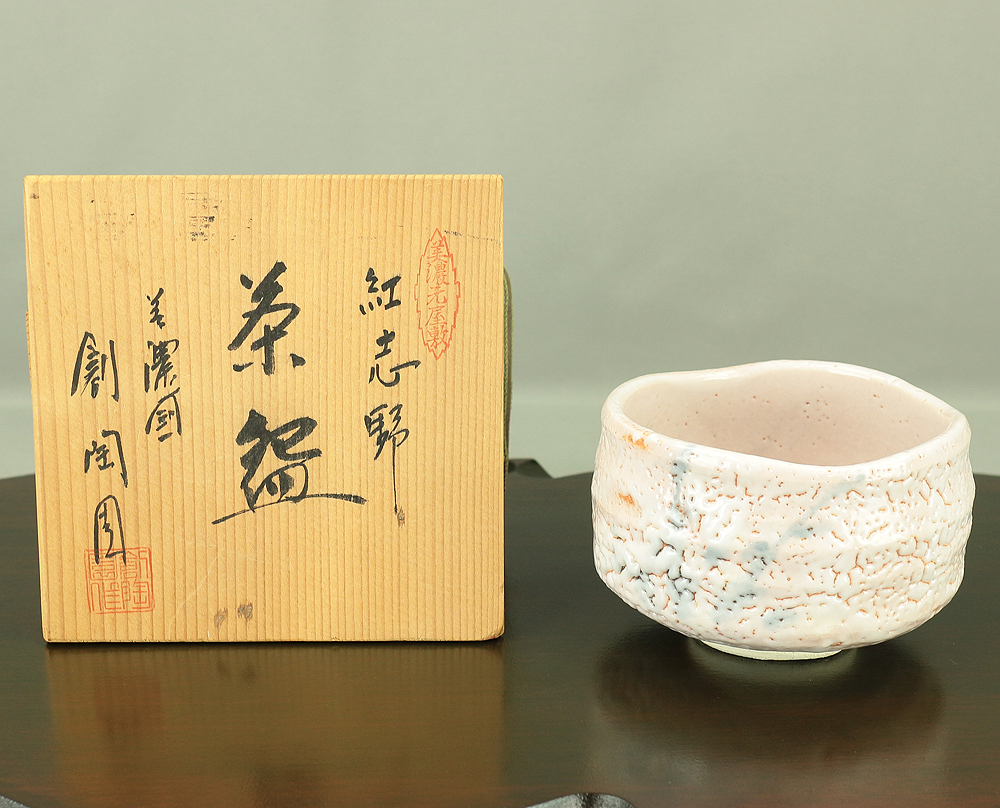 美濃元屋敷
紅志野
茶盌
美濃国
創陶園